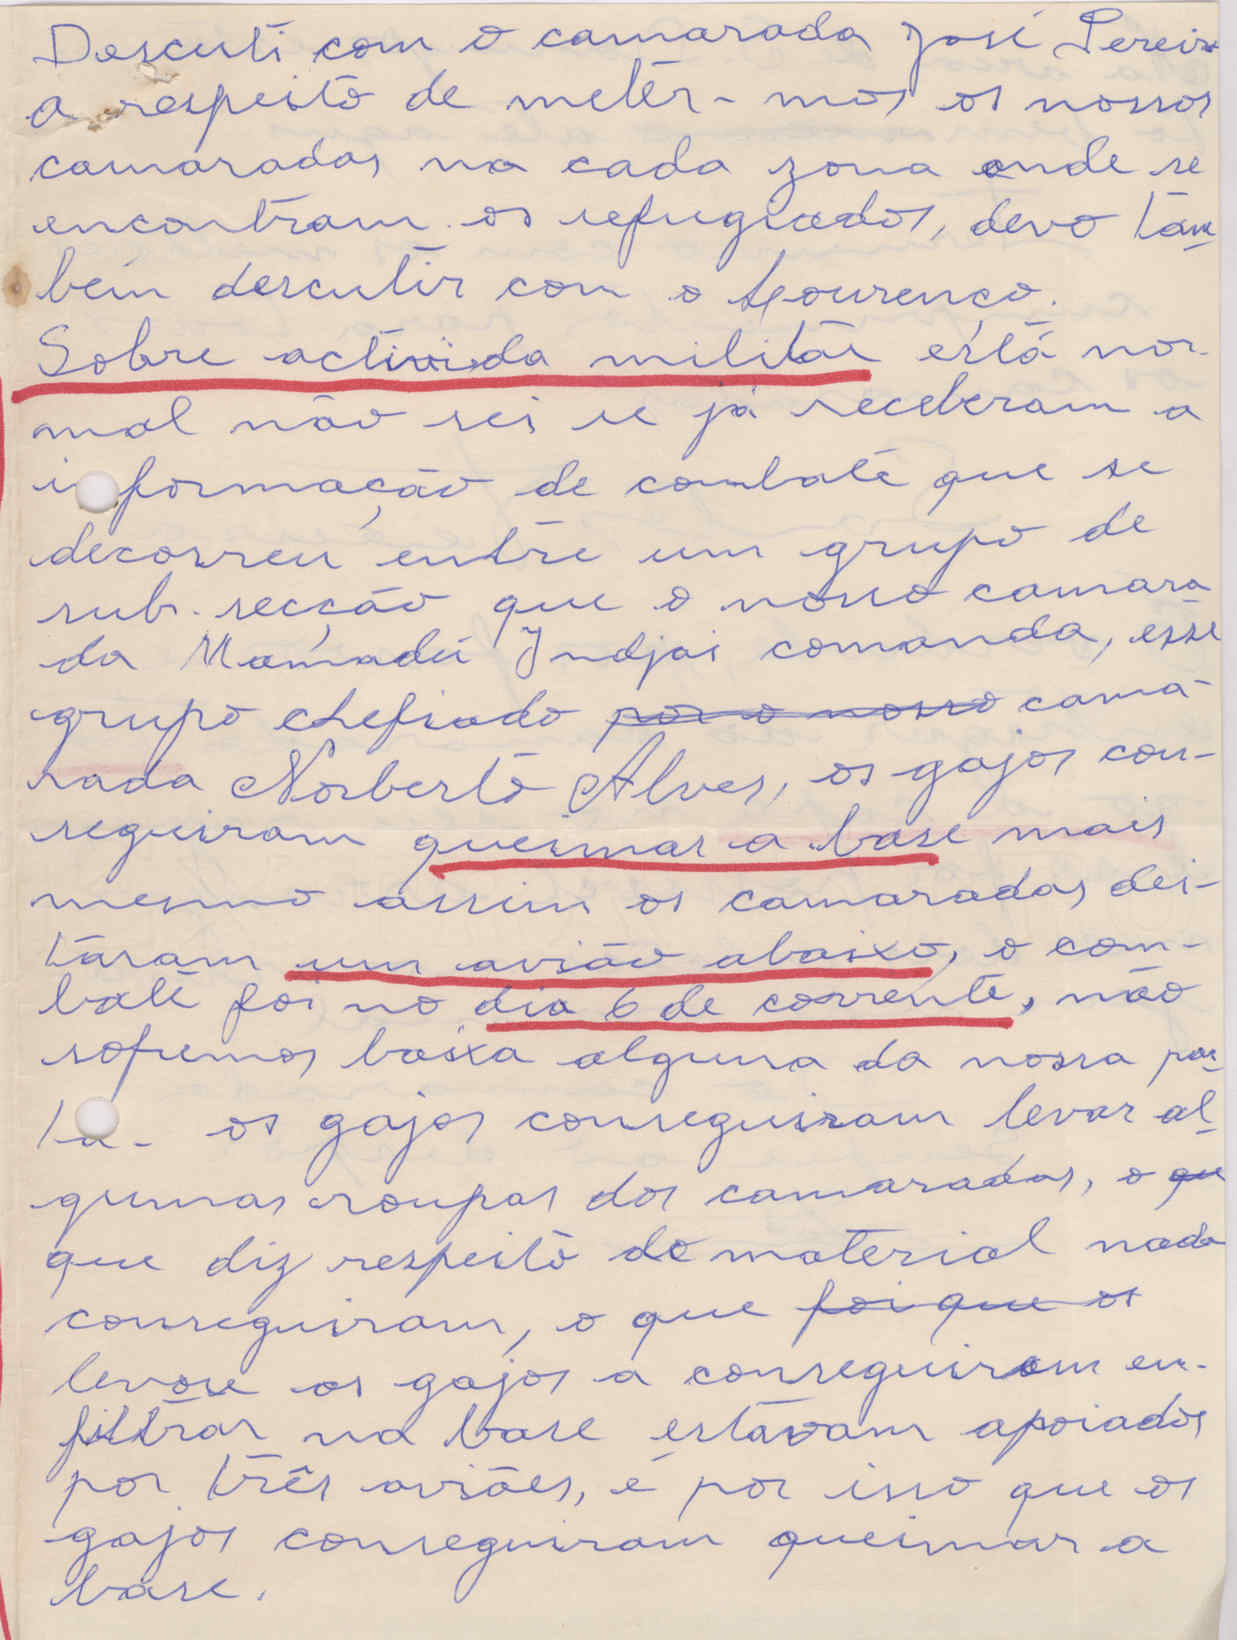 Descuti com o camarada José Pereira
a respeito de metêr-mos os nossos
camaradas na cada zona onde se
encontram os refugiados, devo tam-
bém descutir com o Lourenço.
Sobre activida militar está nor-
mal não sei se já receberam a
informação de combate que se
decorreu entre um grupo de
sub-secção que o nosso camara
da Mamadú Indjai comanda, esse
grupo chefiado por o nosso cama-
rada Norberto Alves, os gajos con-
seguiram queimar a base mais
mesmo assim os camaradas dei-
taram um avião abaixo, o com-
bate foi no dia 6 de corrente, não
sofremos baixa alguma da nossa par-
ta- os gajos conseguiram levar al-
gumas roupas dos camaradas, o que
que diz respeito do material nada
conseguiram, o que foi que os
levou os gajos a conseguirem en-
filtrar na base estavam apoiados
por três aviões, é por isso que os
gajos conseguiram queimar a
base.